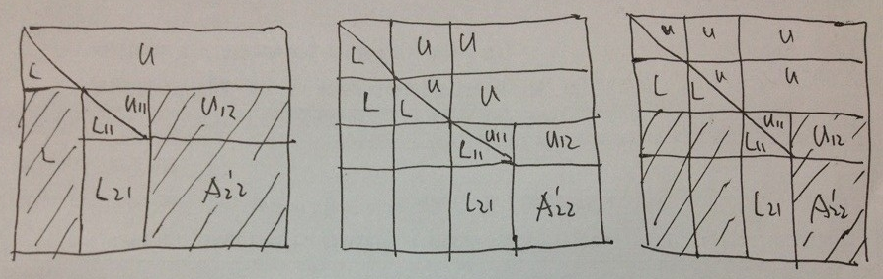 L U
U11 U12
L L11
L21 A'22
L U U
L L U U
U11 U12
L11
L21 A'22
U U U
L L U U
U11 U12
L11
L21 A'22